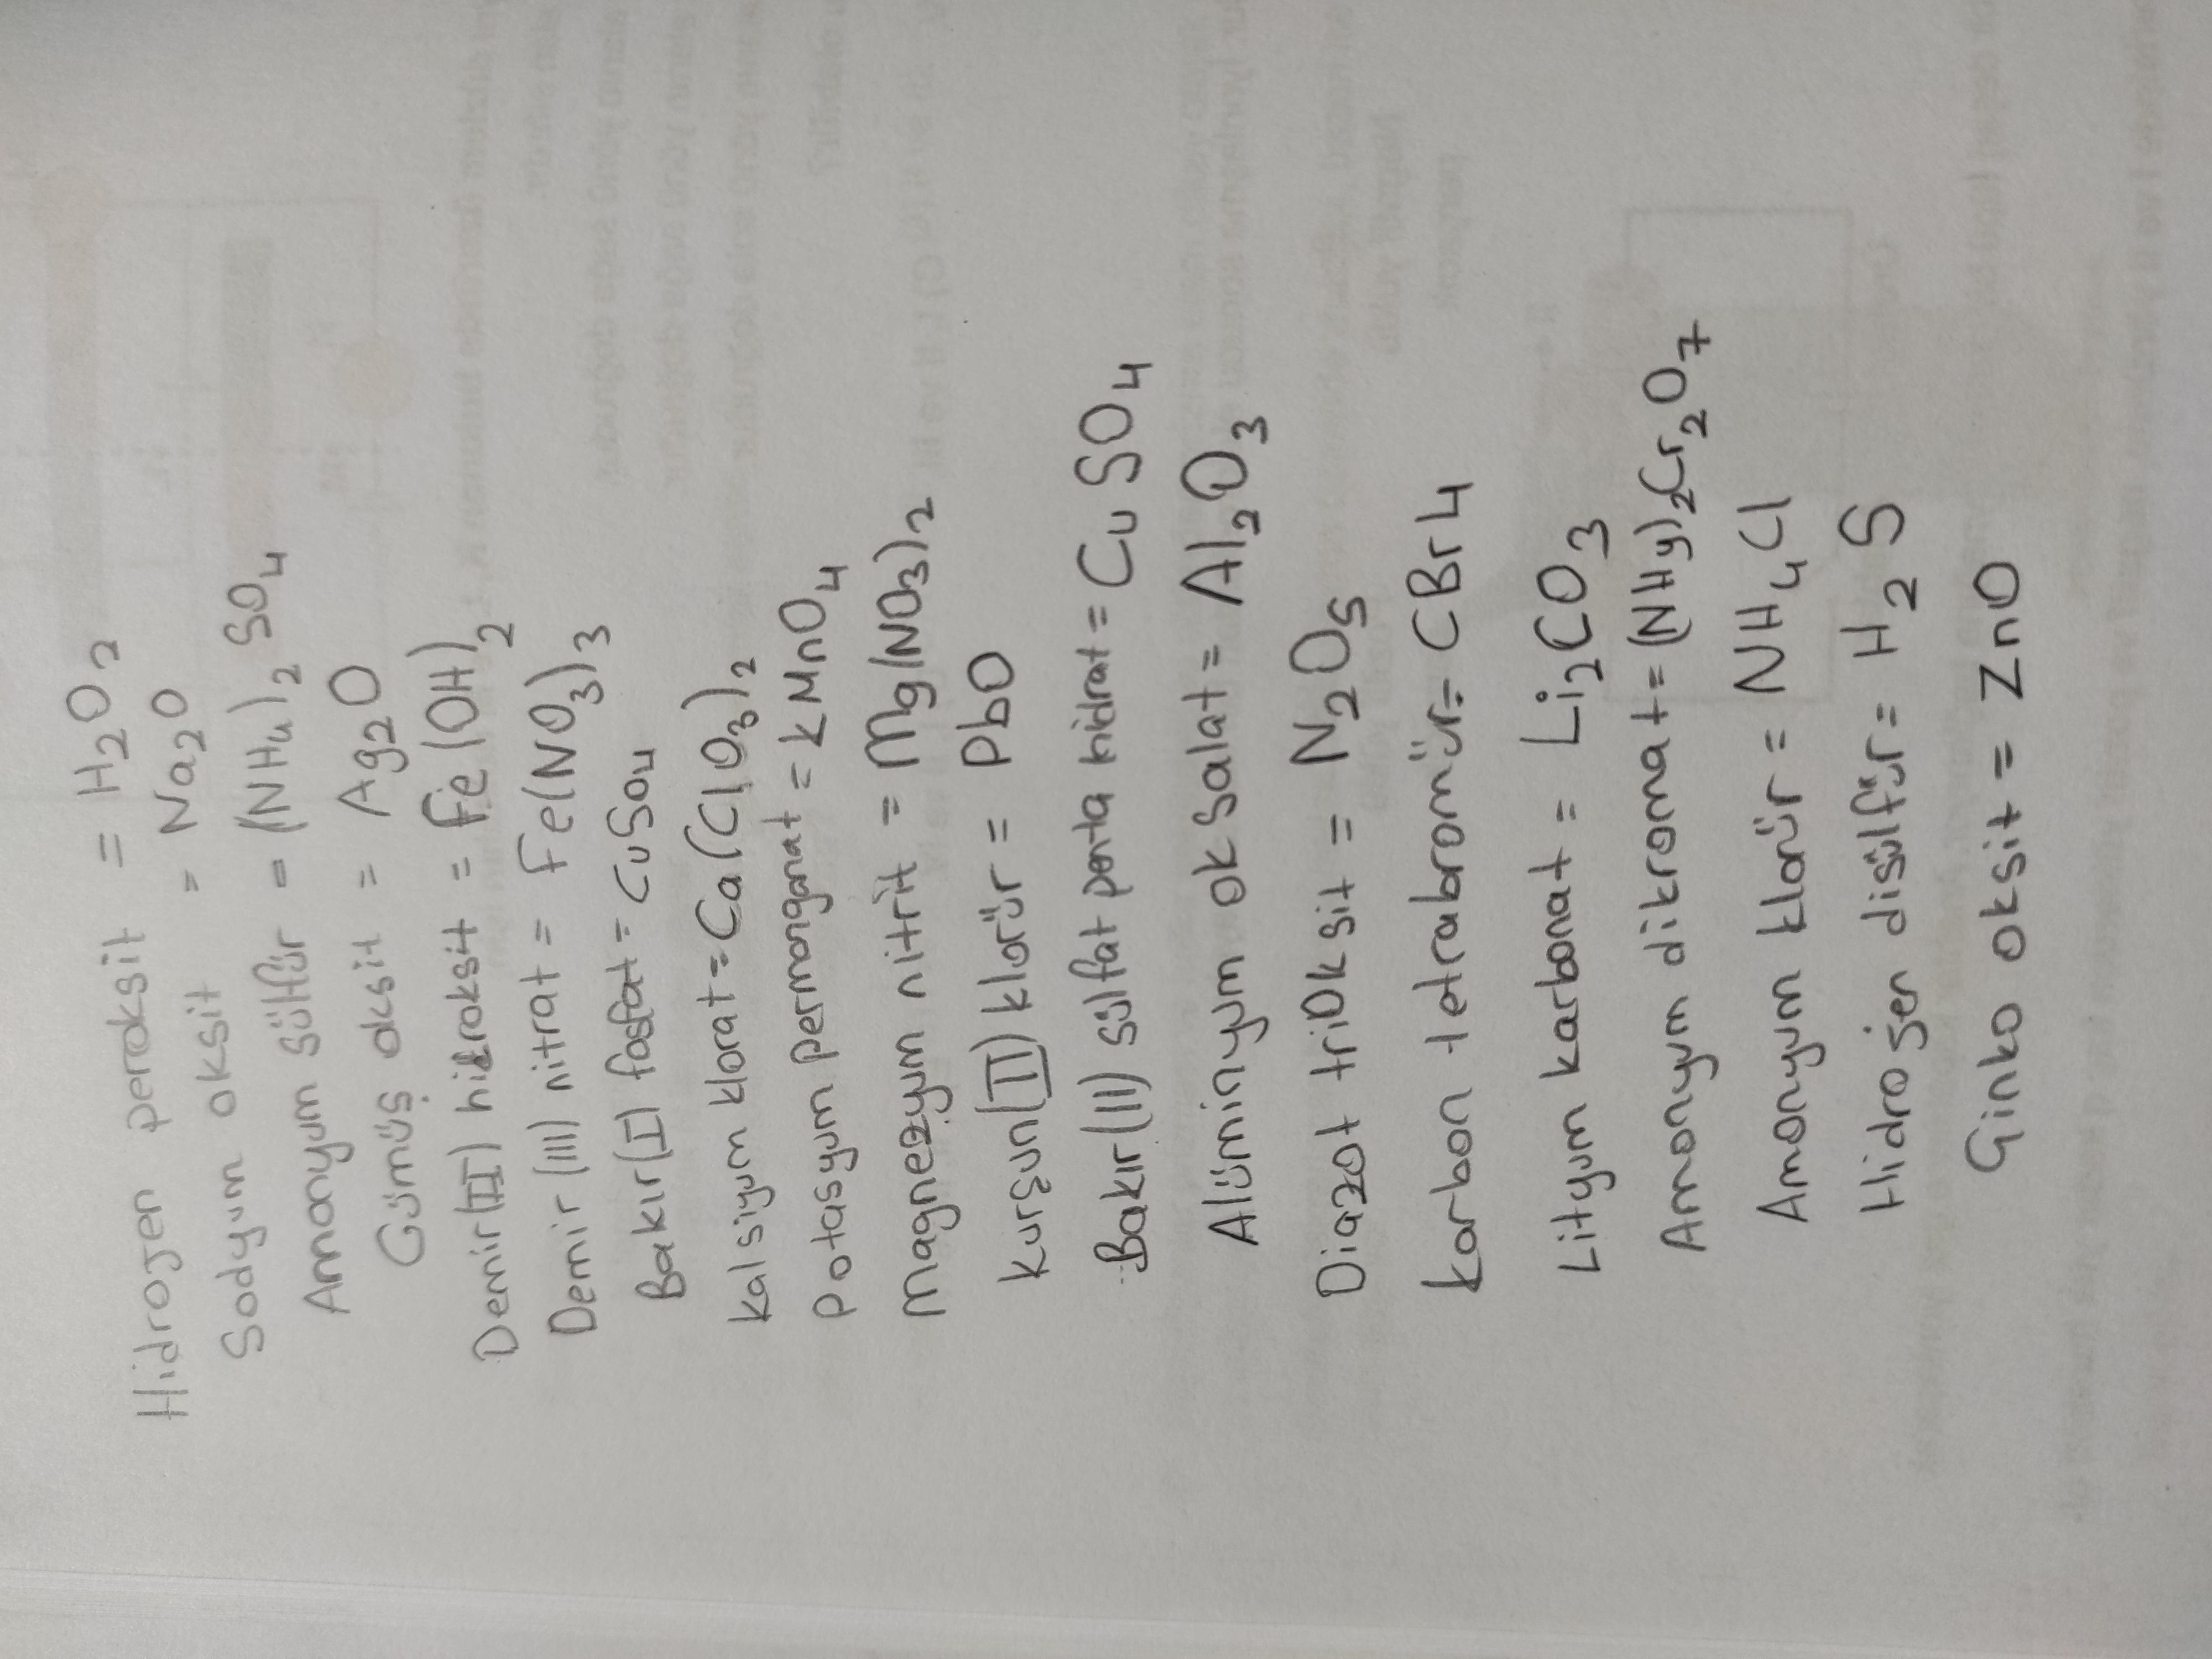 Hidrojen peroksit = H2O2
Sodyum oksit = Na2O
Amonyum sülfür = (NH4)2 SO4
Gümüş oksit = Ag2O
Demir(II) hidroksit = Fe(OH)2
Demir (III) nitrat = Fe(NO3)3
Bakır(I) fosfat = CuSO4
Kalsiyum klorat = Ca(ClO3)2
Potasyum permanganat = KMnO4
Magnezyum nitrit = Mg(NO3)2
Kurşun(II) klorür = PbO
Bakır(II) sülfat penta hidrat = CuSO4
Alüminyum oksalat = Al2O3
Diazot trioksit = N2O5
Karbon tetrabromür = CBr4
Lityum karbonat = Li2CO3
Amonyum dikromat = (NH4)2Cr2O7
Amonyum klorür = NH4Cl
Hidrojen disülfür = H2S
Ginko oksit = ZnO